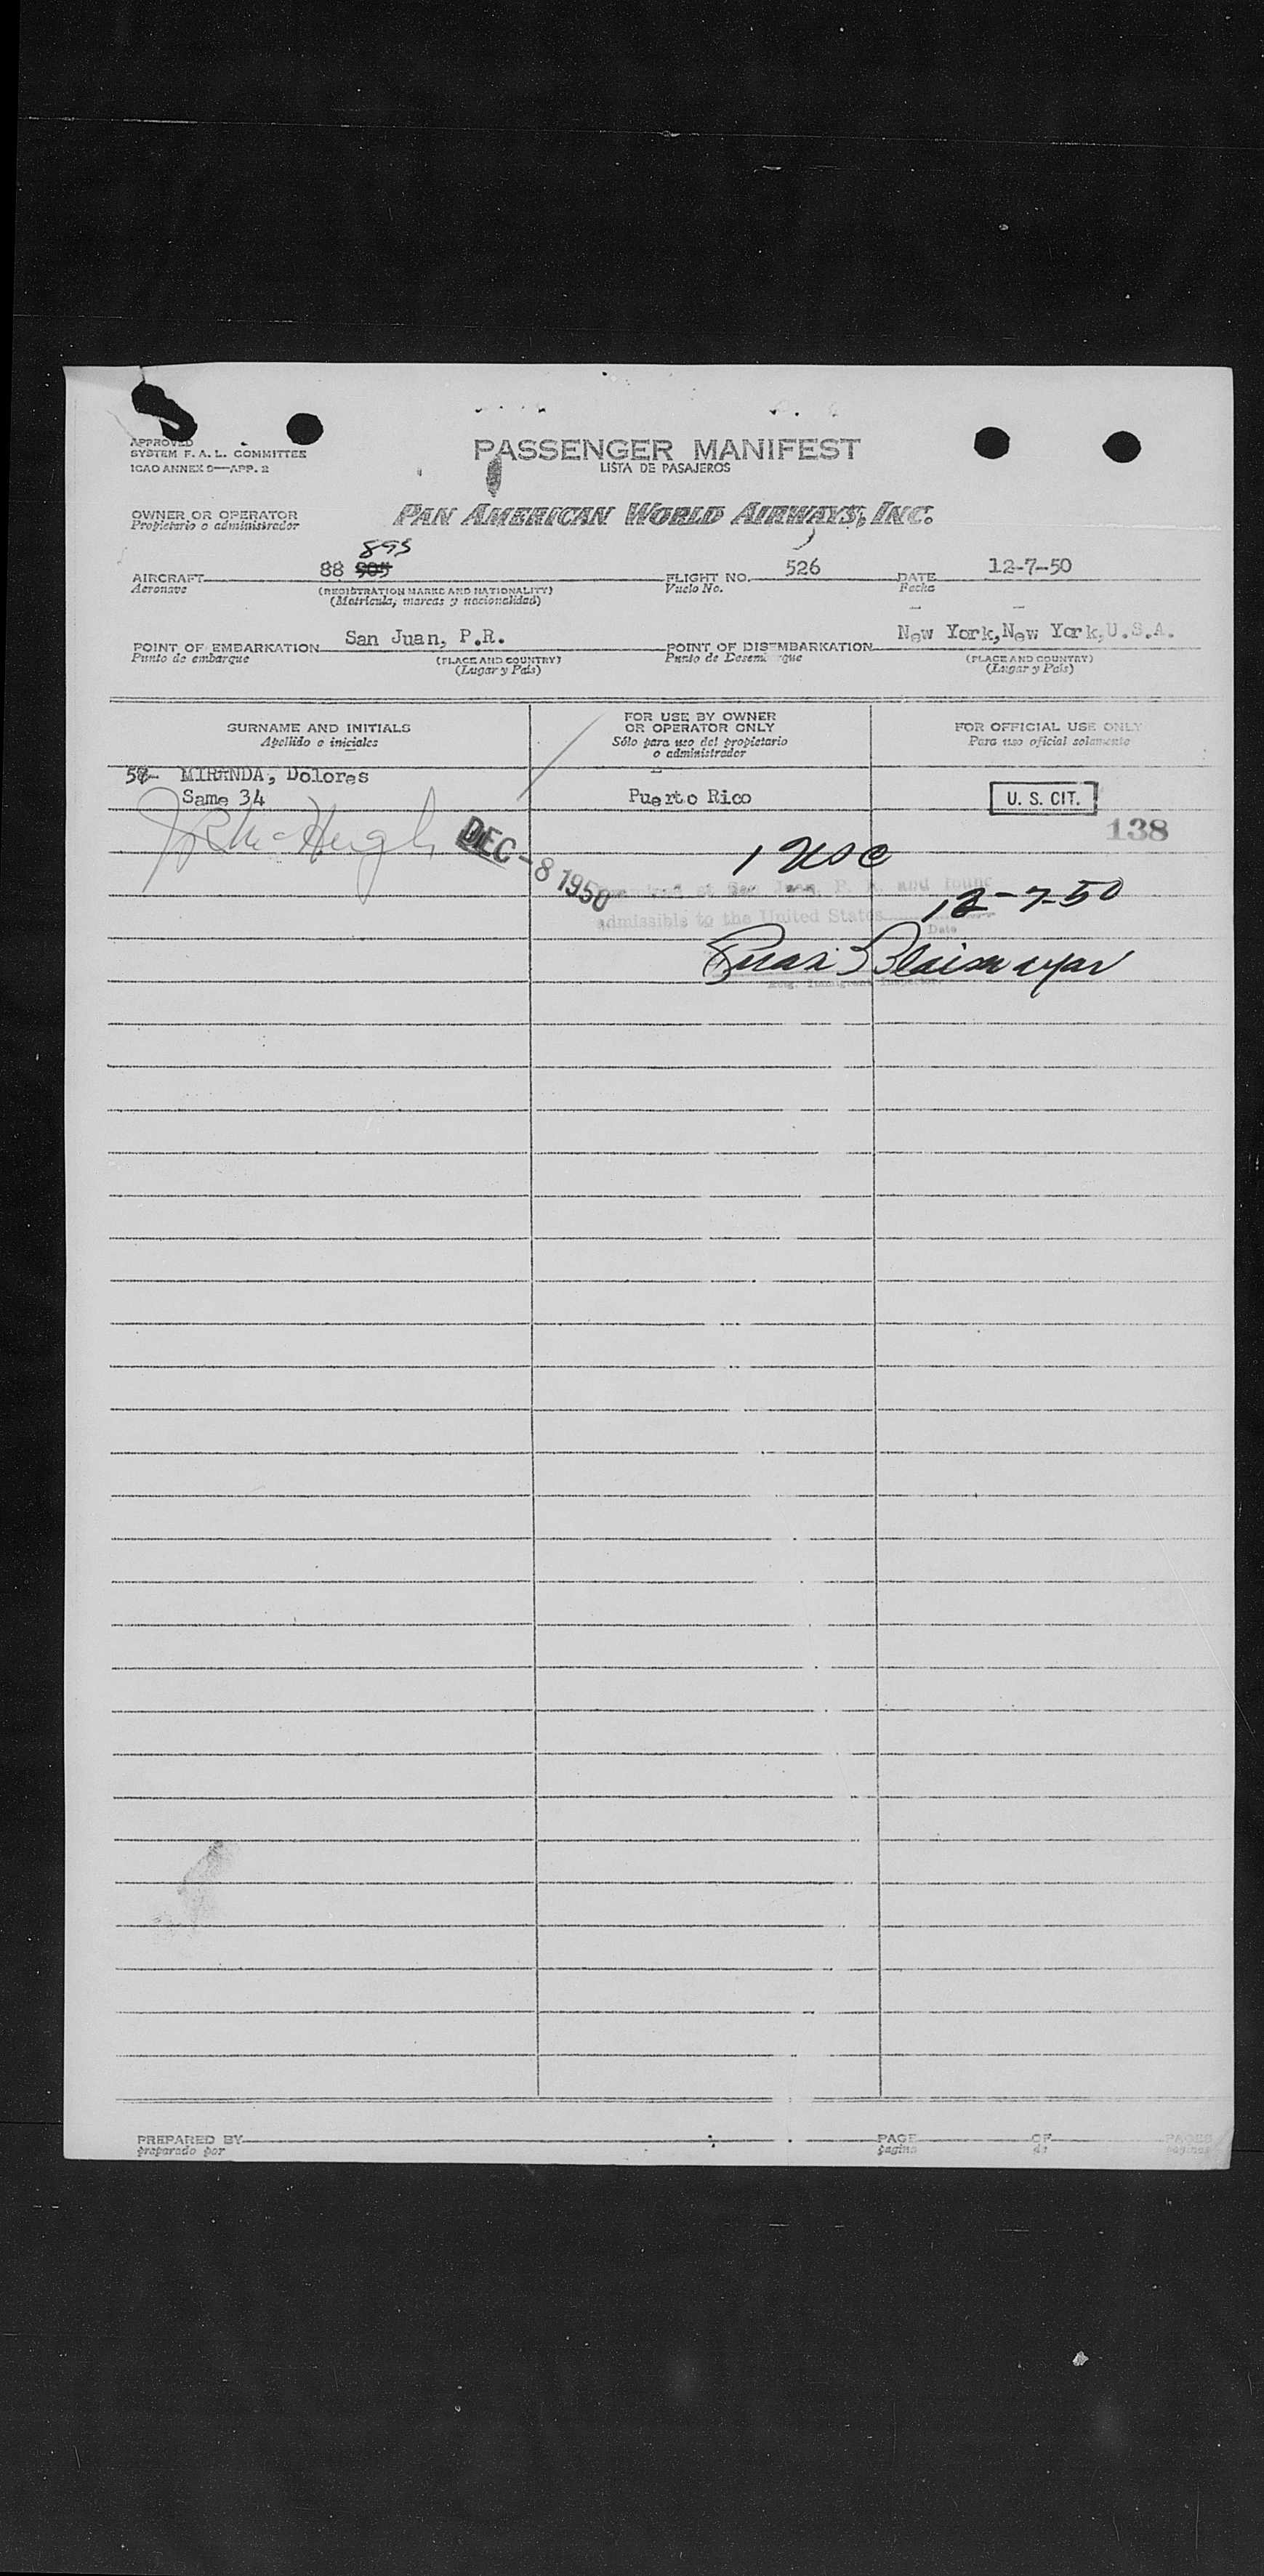 APPROVED
SYSTEM F. A. L. COMMITTEE
ICAO ANNEX 9—APP. 2
PASSENGER MANIFEST
LISTA DE PASAJEROS
OWNER OR OPERATOR
Propietario o administrador
PAN AMERICAN WORLD AIRWAYS, INC.
895
AIRCRAFT 88 905 FLIGHT NO. 526 DATE 12-7-50
Aeronave (REGISTRATION MARKS AND NATIONALITY) Vuelo No. Fecha
(Matrícula, marcas y nacionalidad)
POINT OF EMBARKATION San Juan, P.R. POINT OF DISEMBARKATION New York,New York,U.S.A.
Punto de embarque (PLACE AND COUNTRY) Punto de Desembarque (PLACE AND COUNTRY)
(Lugar y País) (Lugar y País)
SURNAME AND INITIALS
Apellido e iniciales
FOR USE BY OWNER
OR OPERATOR ONLY
Sólo para uso del propietario
o administrador
FOR OFFICIAL USE ONLY
Para uso oficial solamente
MIRANDA, Dolores
Same 34 Puerto Rico U. S. CIT.
138
DEC -8 1950
1 USC
at San Juan, P. R. and found
admissible to the United States 12-7-50
Date
PREPARED BY PAGE OF PAGES
preparado por página de páginas